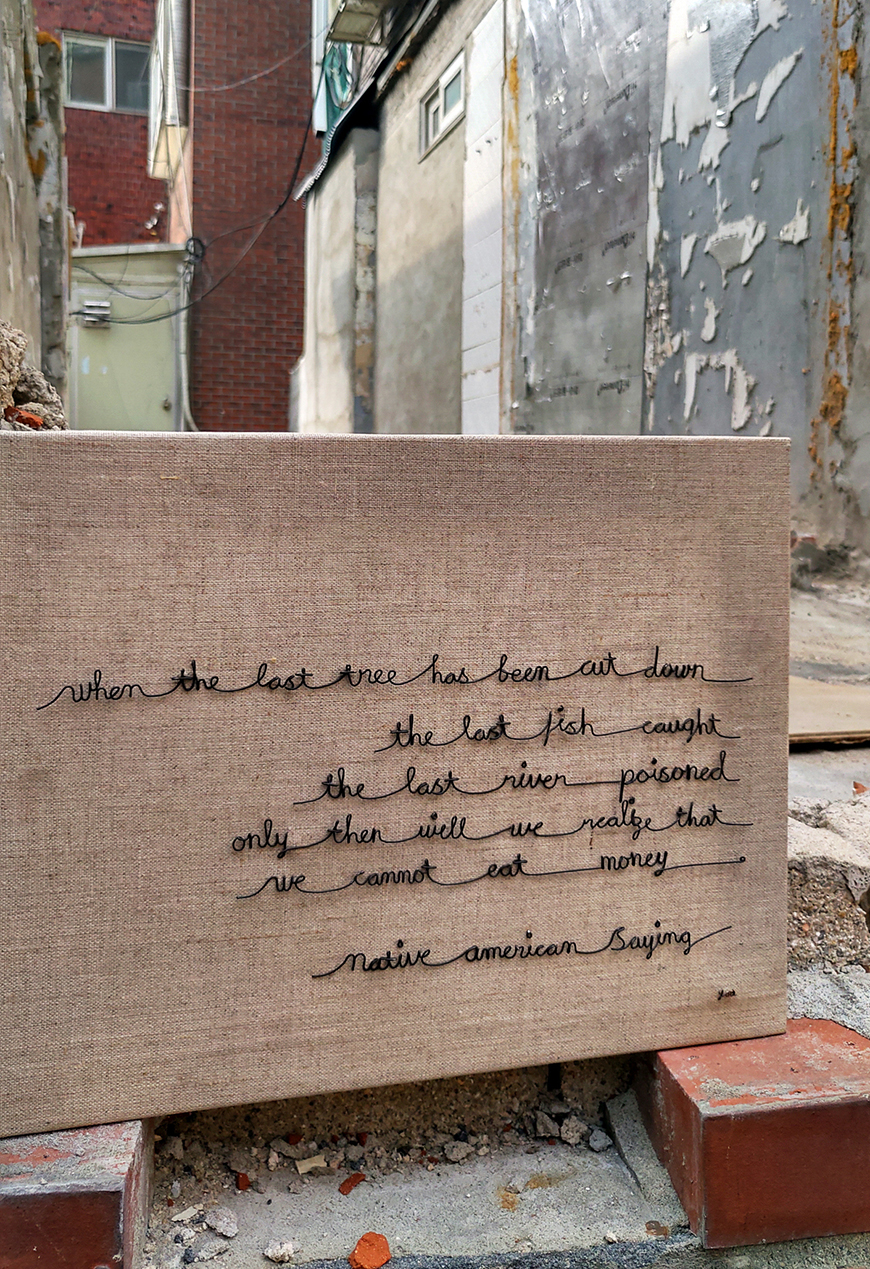 when the last tree has been cut down
the last fish caught
the last river poisoned
only then will we realize that
we cannot eat money
Native american Saying